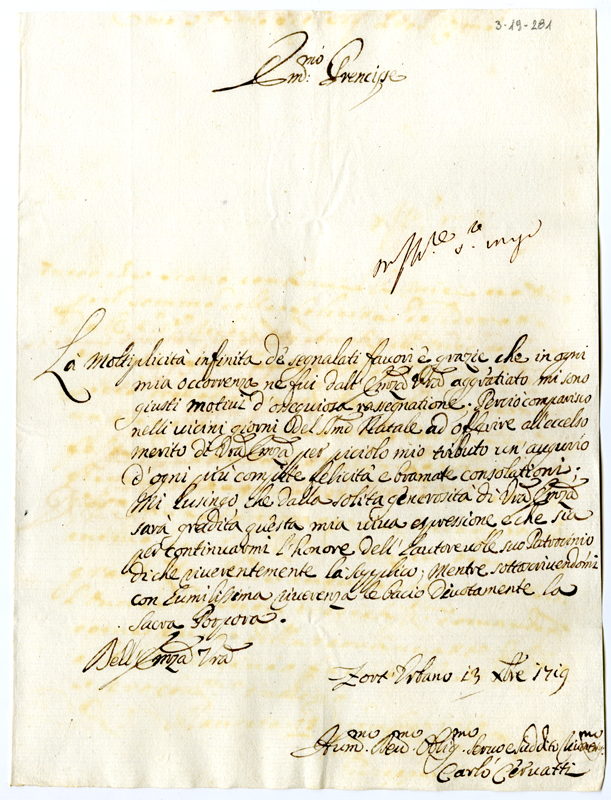 3-19-281
Em:mo Prencipe
La Moltiplicità infinita de segnalati favori è grazie che in ogni
mia occorrenza ne fui dall' Emza Vra aggratiato mi sono
giusti motivi d'ossequiosa rassegnatione. Perciò comparisco
nelli vicini giorni del Smo Natale ad offerire all'eccelso
merito di Vra Emza per piciolo mio tributo un'augurio
d'ogni più complete felicità e bramate consolationi.
Mi lusingo che dalla solita generosità di Vra Emza
sarà gradita questa mia viva espressione e che sia
per continuarmi l'honore dell'autorevole suo Patrocinio
di che riverentemente la supplico; Mentre sottoscrivendomi
con humilissima riverenza le bacio divotamente la
Sacra Porpora.
Dell' Emza Vra
Forte Urbano 13 Xbre 1719
Hum.mo Dev.mo Oblig.mo Servo e Suddito
Carlo Cervatti